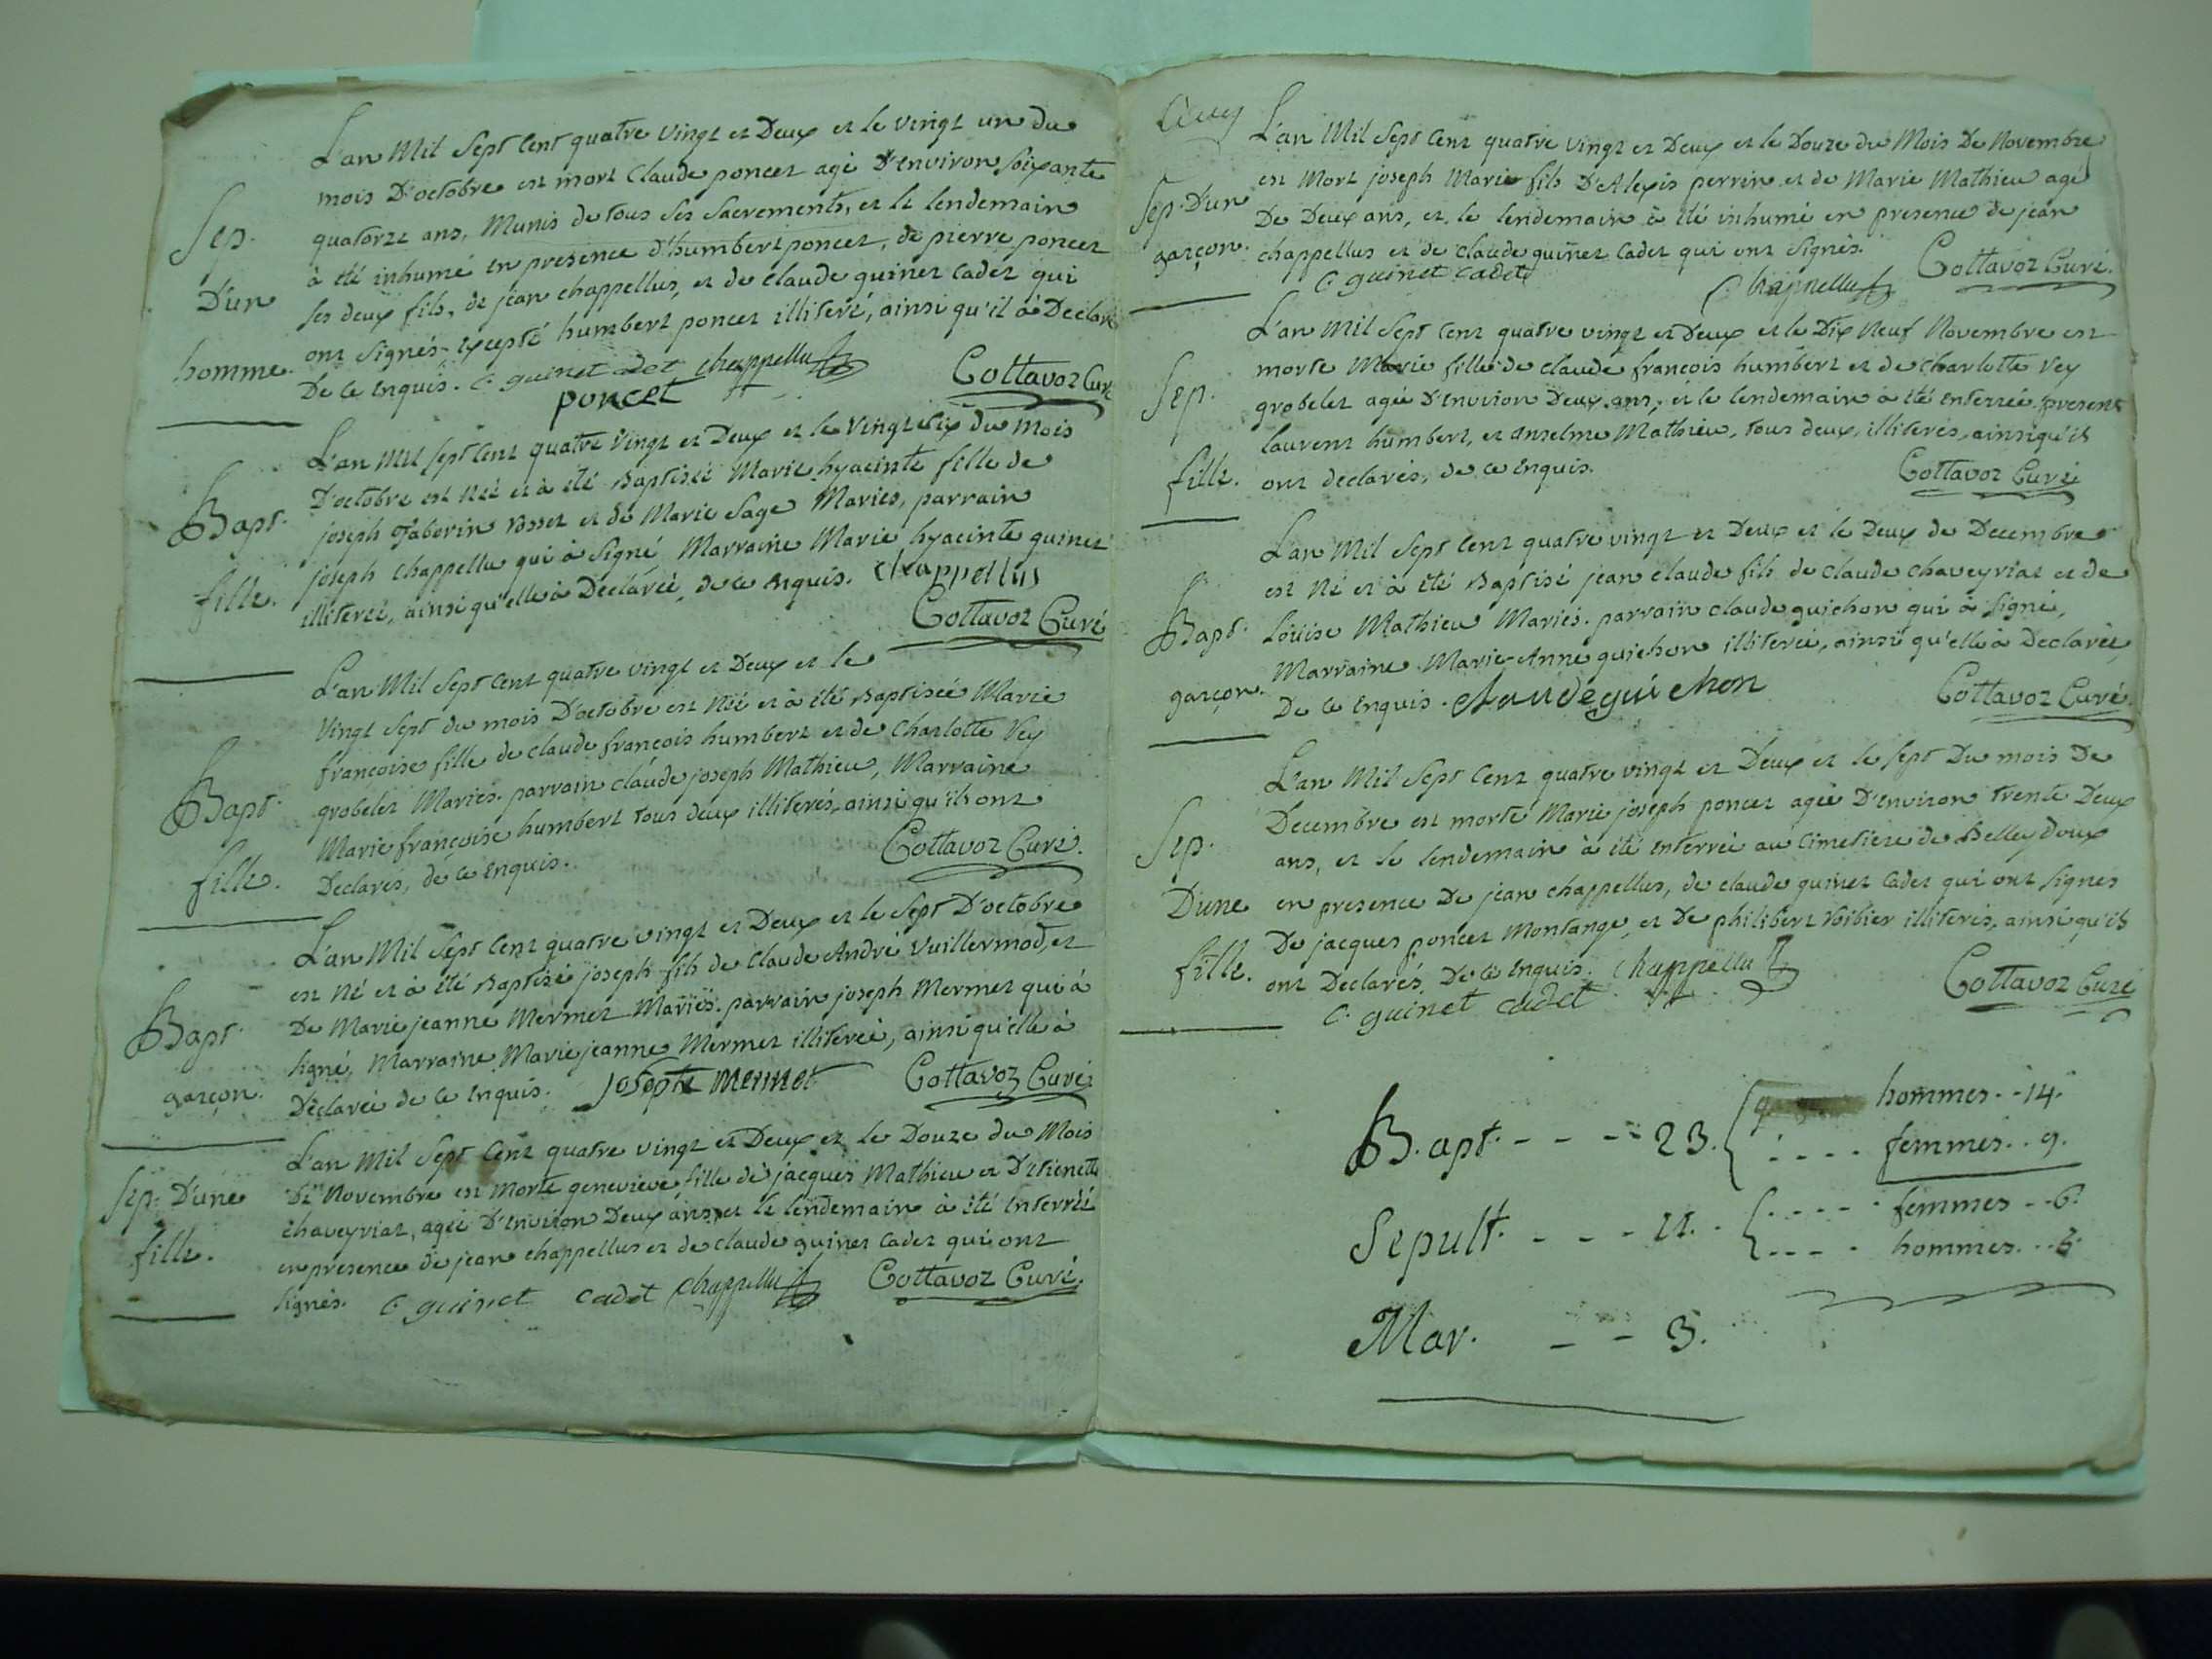 L'an Mil Sept Cent quatre vingt et Deux et le vingt un du
mois D'octobre est mort Claude poncet agé D'environ soixante
Sep. quatorze ans, Munis de tous ses sacrements, et le lendemain
à été inhumé en presence d'humbert poncet, de pierre poncet
D'un ses deux fils, de jean chappellus, et de claude guinet cadet qui
ont signés excepté humbert poncet illiteré, ainsi qu'il à Declaré
homme. De ce Enquis. C. guinet cadet chappellu
poncet Cottavoz Curé
L'an Mil sept Cent quatre Vingt et Deux et le Vingt six du mois
D'octobre est Née et à été Baptisée Marie hyacinte fille de
Bapt. joseph faborin Rosset et de Marie Sage Mariés, parrain
joseph Chappellu qui à Signé Marraine Marie hyacinte guinet
fille. illiterée, ainsi qu'elle à Declarée, de ce Enquis. chappellus
Cottavoz Curé
L'an Mil Sept Cent quatre vingt et Deux et le
Vingt Sept du mois D'octobre est Née et à été Baptisée Marie
françoise fille de claude françois humbert et de Charlotte Vey
Bapt. grobelet Mariés. parrain claude joseph Mathieu, Marraine
Marie françoise humbert tous deux illiterés, ainsi qu'ils ont
fille. Declarés, de ce Enquis. Cottavoz Curé.
L'an Mil Sept Cent quatre vingt et Deux et le Sept D'octobre
est Né et à été Baptisé joseph fils de Claude André Vuillermod, et
Bapt. De Marie jeanne Mermet Mariés. parrain joseph Mermet qui à
signé, Marraine Marie jeanne Mermet illiterée, ainsi qu'elle à
garçon. Déclarée de ce Enquis. joseph mermet Cottavoz Curé
L'an Mil Sept Cent quatre vingt et Deux et le Douze du Mois
Sep. D'une De Novembre est Morte genevieve fille de jacques Mathieu et D'Etienette
chaveyriat, agée D'environ Deux ans, et le lendemain à été Enterrée
fille. en presence de jean chappellus et de claude guinet Cadet qui ont
signés. C. guinet cadet chappellu Cottavoz Curé.
L'an Mil Sept Cent quatre vingt et Deux et le Douze du Mois De Novembre
est Mort joseph Marie fils D'Alexis perrin et de Marie Mathieu agé
Sep. D'un De Deux ans, et le lendemain à été inhumé en presence de jean
garçon. chappellus et de claude guinet Cadet qui ont Signés.
C. guinet cadet Chappellu Cottavoz Curé.
L'an Mil Sept Cent quatre vingt et Deux et le Dix Neuf Novembre est
morte Marie fille de claude françois humbert et de Charlotte Vey
Sep. grobelet agée D'environ Deux ans, et le lendemain à été Enterrée. presents
laurent humbert, et Anselme Mathieu, tous deux, illiterés, ainsi qu'ils
fille. ont declarés, de ce Enquis. Cottavoz Curé
L'an Mil Sept Cent quatre vingt et Deux et le Deux de Decembre
est Né et à été Baptisé jean claude fils de claude chaveyriat et de
Bapt. Louise Mathieu Mariés. parrain claude guichon qui à signé,
Marraine Marie-Anne guichon illiterée, ainsi qu'elle à Declarée,
garçon. De ce Enquis. claude guichon Cottavoz Curé.
L'an Mil Sept Cent quatre vingt et Deux et le sept Du mois De
Decembre est morte Marie joseph poncet agée D'environ trente Deux
Sep. ans, et le lendemain à été Enterrée au Cimetiere de Belleydoux
D'une en presence De jean chappellus, de claude guinet Cadet qui ont signés
De jacques poncet Montange, et De philibert Roibier illiterés, ainsi qu'ils
fille. ont Declarés, De ce Enquis. Chappellu
C. guinet cadet Cottavoz Curé
hommes. 14.
Bapt. 23.
femmes. 9.
femmes 6.
Sepult. 11.
hommes.
Mar. 3.